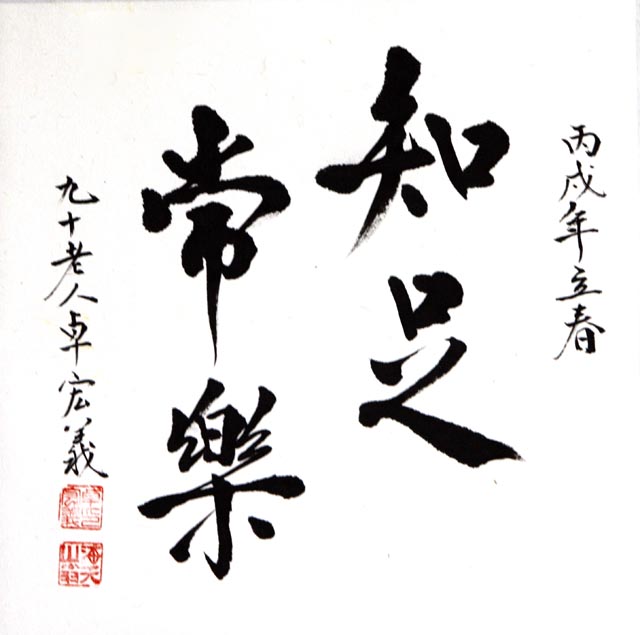 丙戌年立春
知足
常樂
九十老人卓宏義